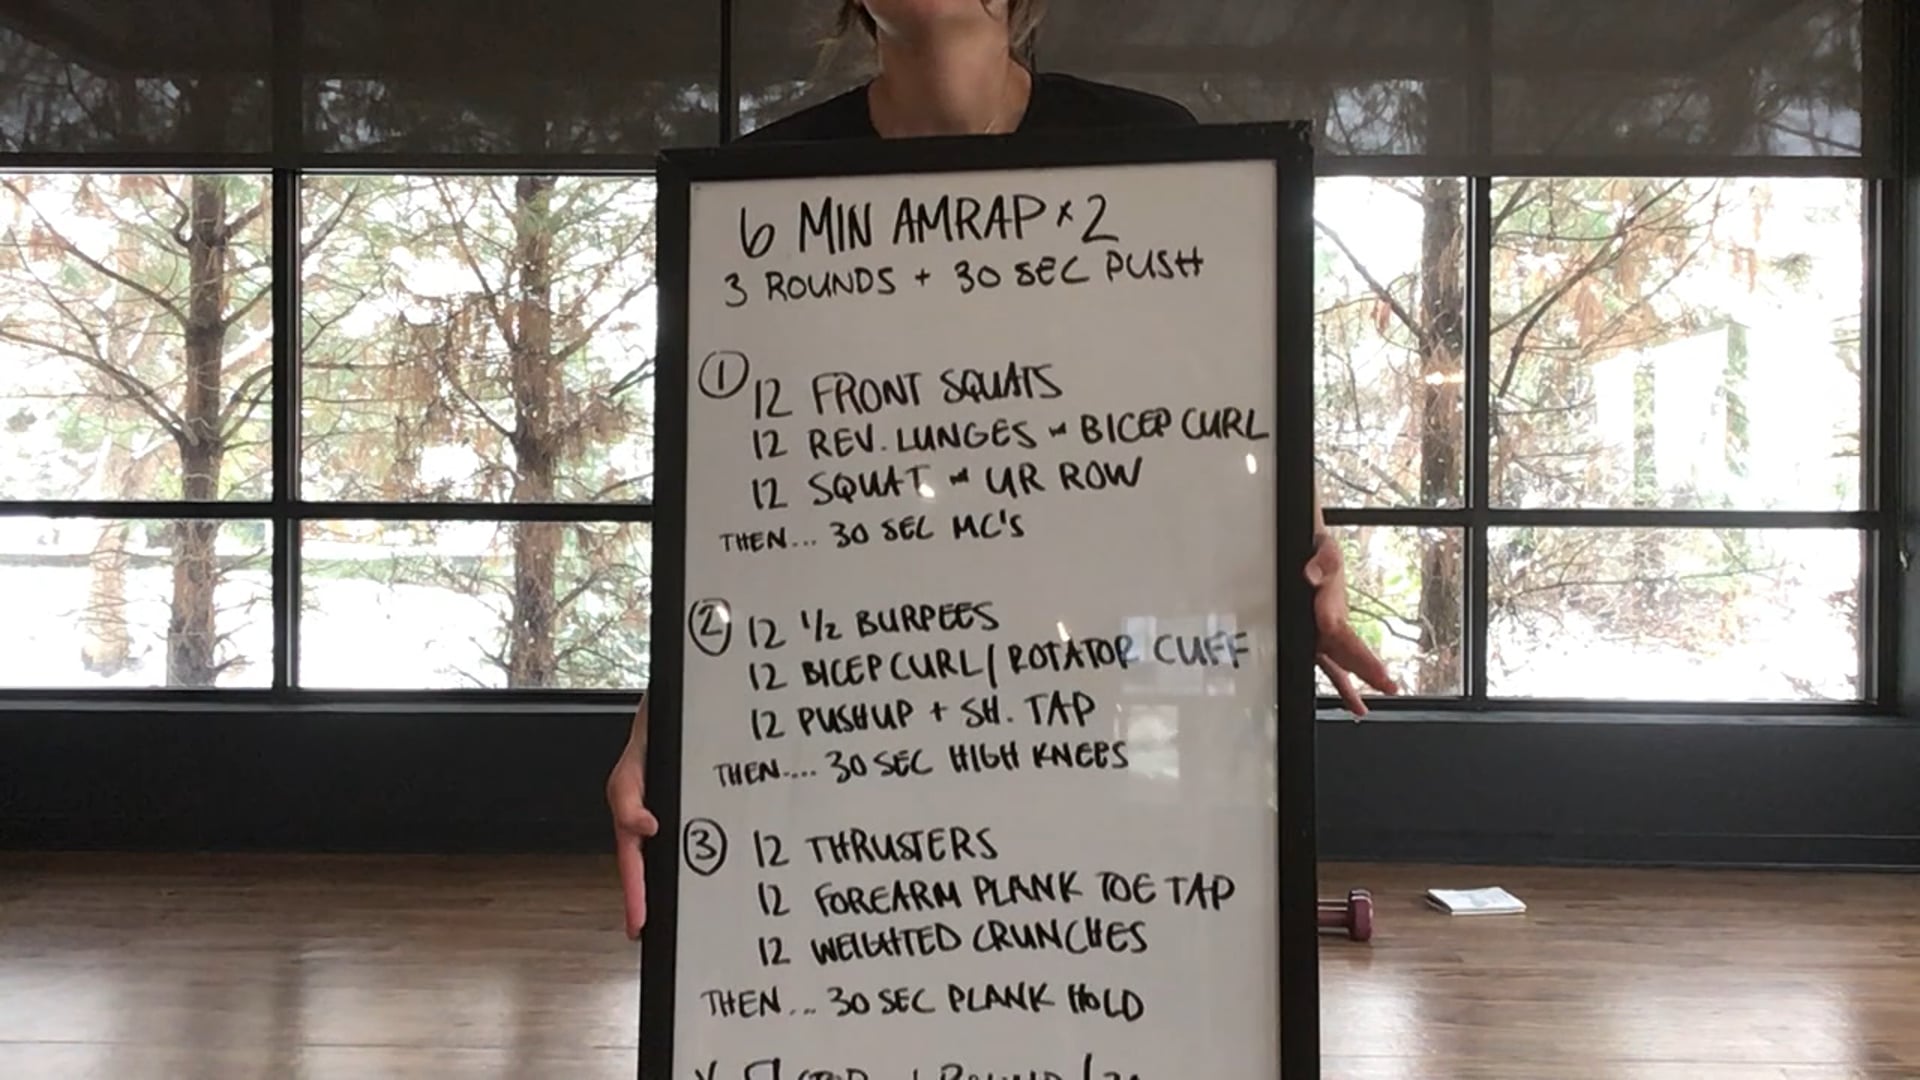 6 MIN AMRAP x 2
3 ROUNDS + 30 SEC PUSH
① 12 FRONT SQUATS
12 REV. LUNGES w BICEP CURL
12 SQUAT w UR ROW
THEN... 30 SEC MC'S
② 12 1/2 BURPEES
12 BICEP CURL / ROTATOR CUFF
12 PUSHUP + SH. TAP
THEN.... 30 SEC HIGH KNEES
③ 12 THRUSTERS
12 FOREARM PLANK TOE TAP
12 WEIGHTED CRUNCHES
THEN... 30 SEC PLANK HOLD